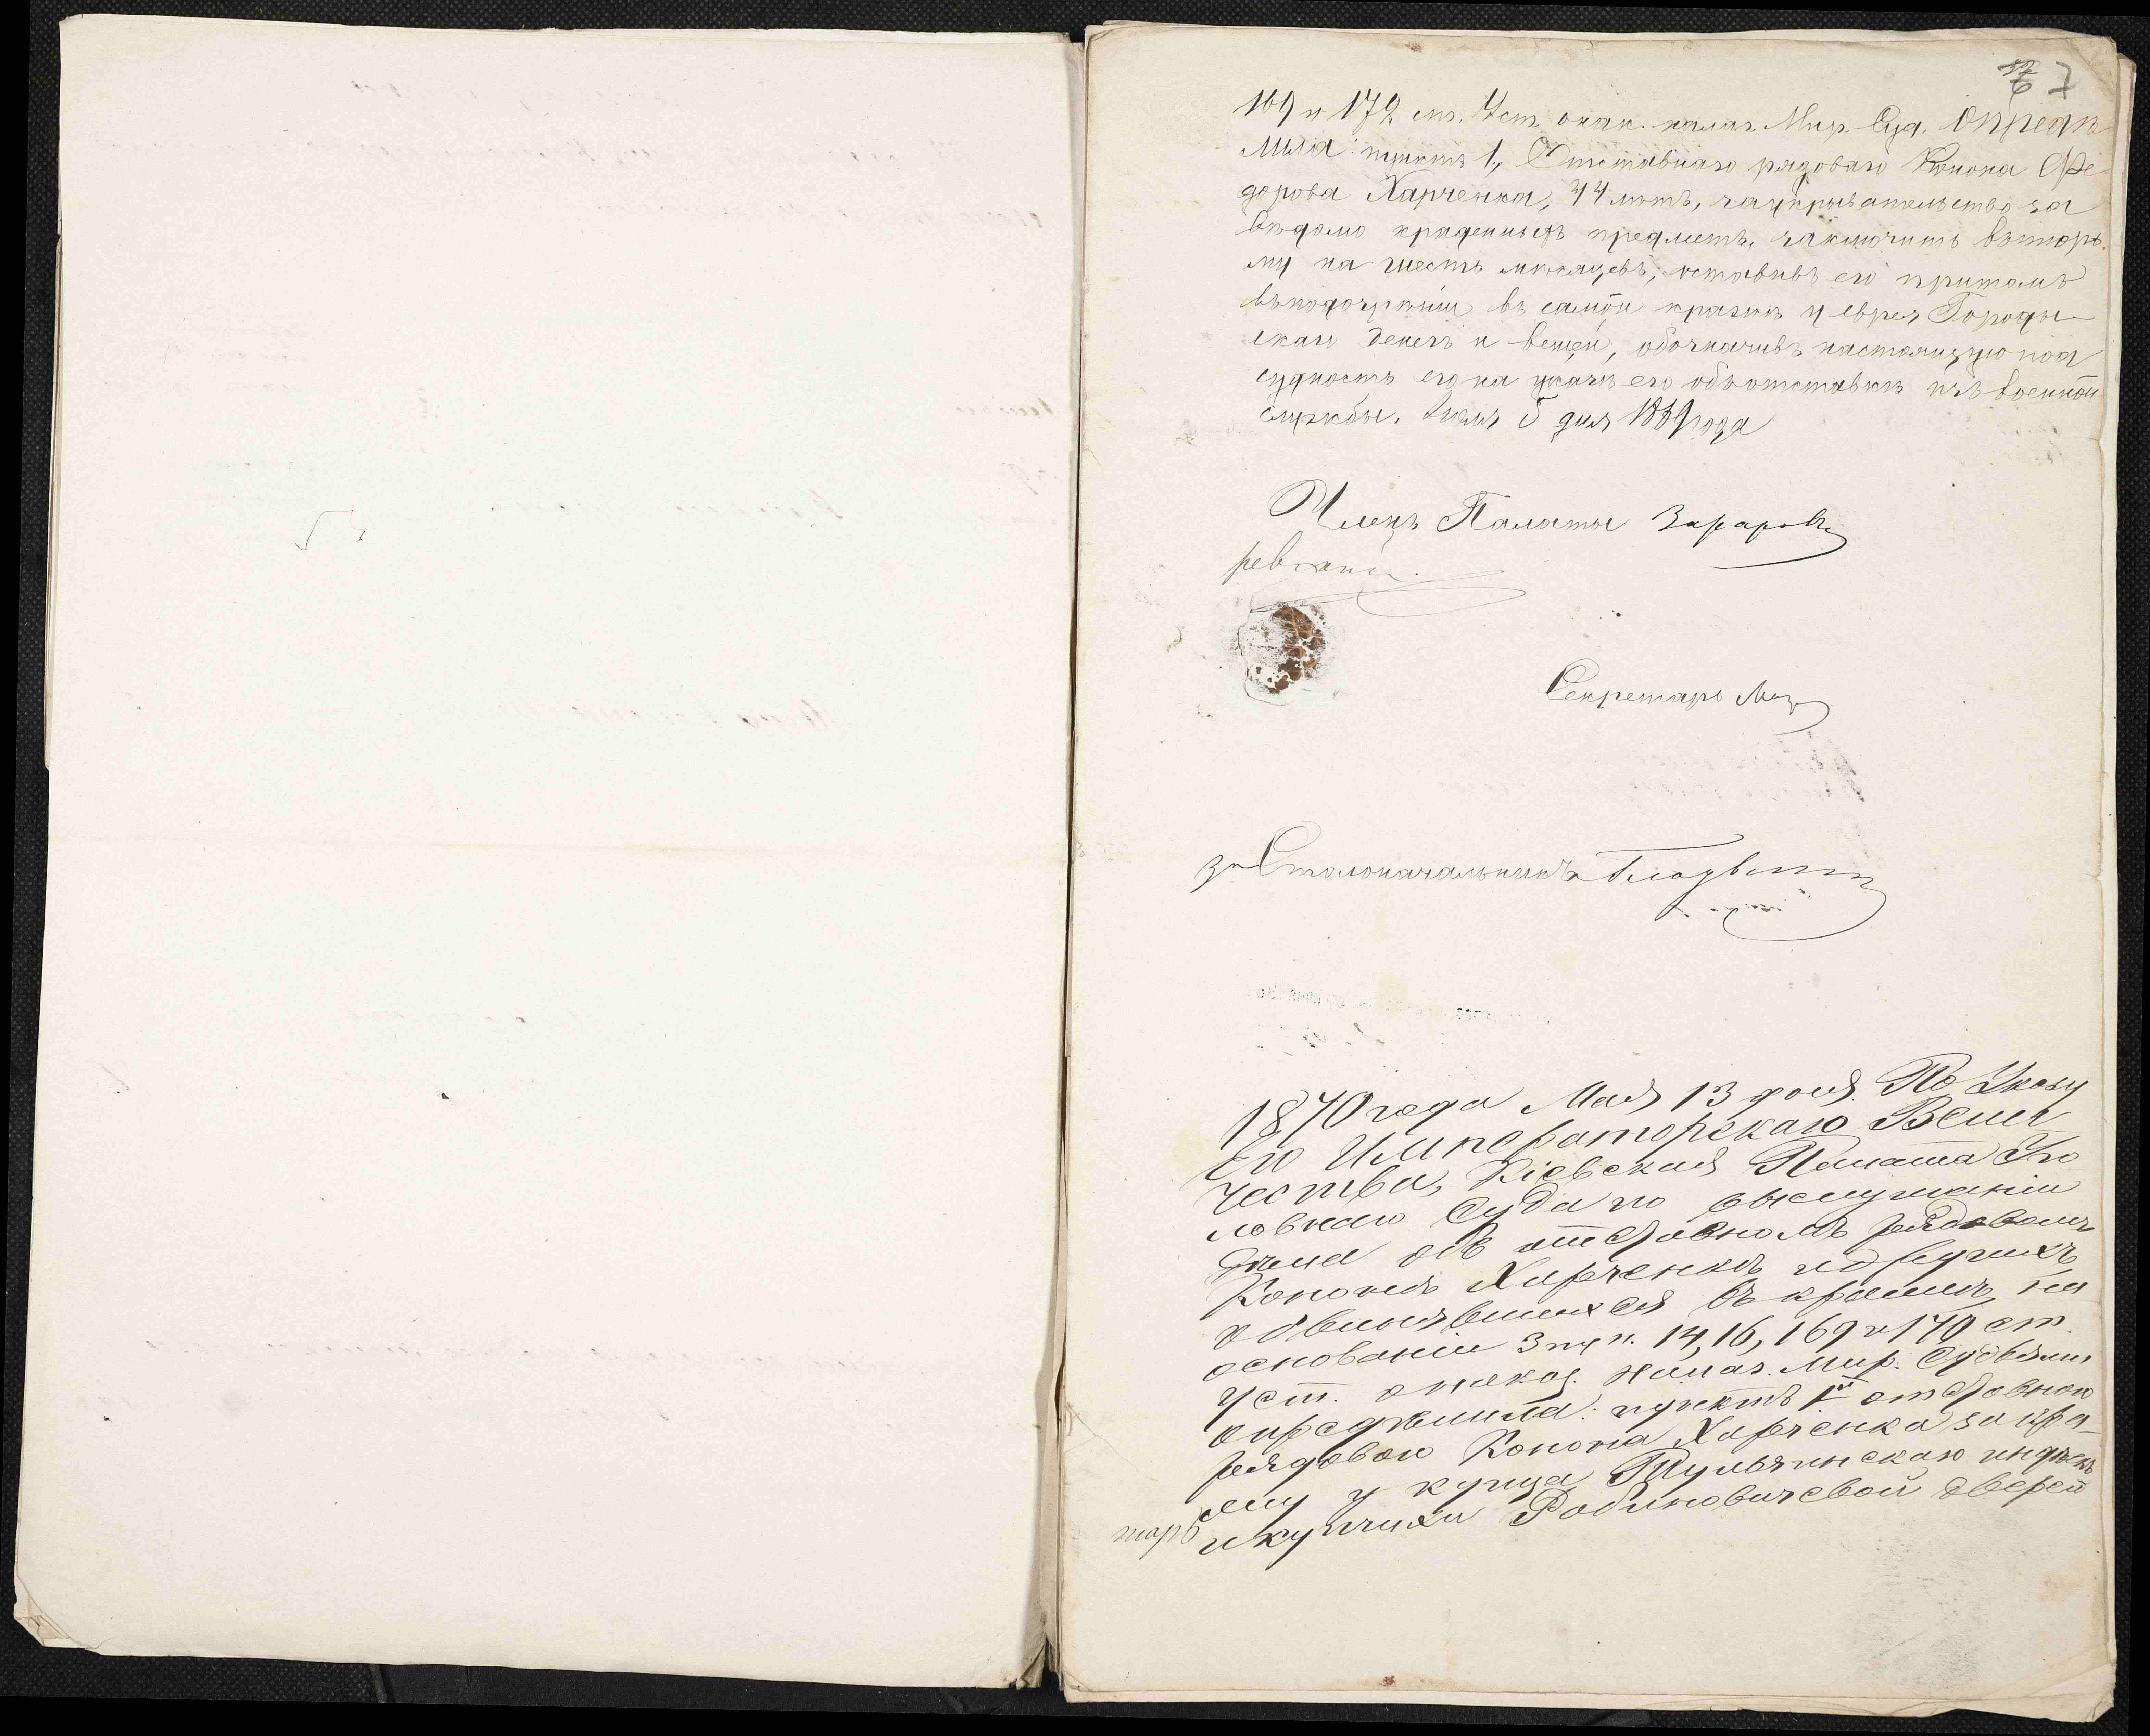 67
169 и 172 ст. Уст. о нак. налаг. Мир. Суд. Опредѣ
лила: пунктъ 1, Отставнаго рядоваго Конона Фе-
дорова Харченка, 44 лѣтъ, за укрывательство за
вѣдомо краденныхъ предмет. заключить въ тюрь
му на шесть мѣсяцевъ, оставивъ его притомъ
въ подозрѣніи въ самой кражѣ у еврея Городы-
скаго денегъ и вещей, обозначивъ настоящую под
судность его на указѣ его объ отставкѣ изъ военной
службы. Іюля 5 дня 1869 года
Членъ Палаты
Секретарь
за Столоначальника
1870 года Мая 13 дня. По Указу
Его Императорскаго Вели
чества, Кіевская Палата Уго
ловнаго Суда по выслушаніи
дѣла объ отставномъ рядовомъ
Кононѣ Харченкѣ и другихъ
обвинявшихся въ кражѣ, на
основаніи 3 пун. 14, 16, 169 и 170 ст.
Уст. о наказ. налаг. Мир. Судьями
опредѣлила: пунктъ 1й отставнаго
рядоваго Конона Харченка за кра-
жу у купца индѣкъ
и купчихи Рабиновичевой дверей